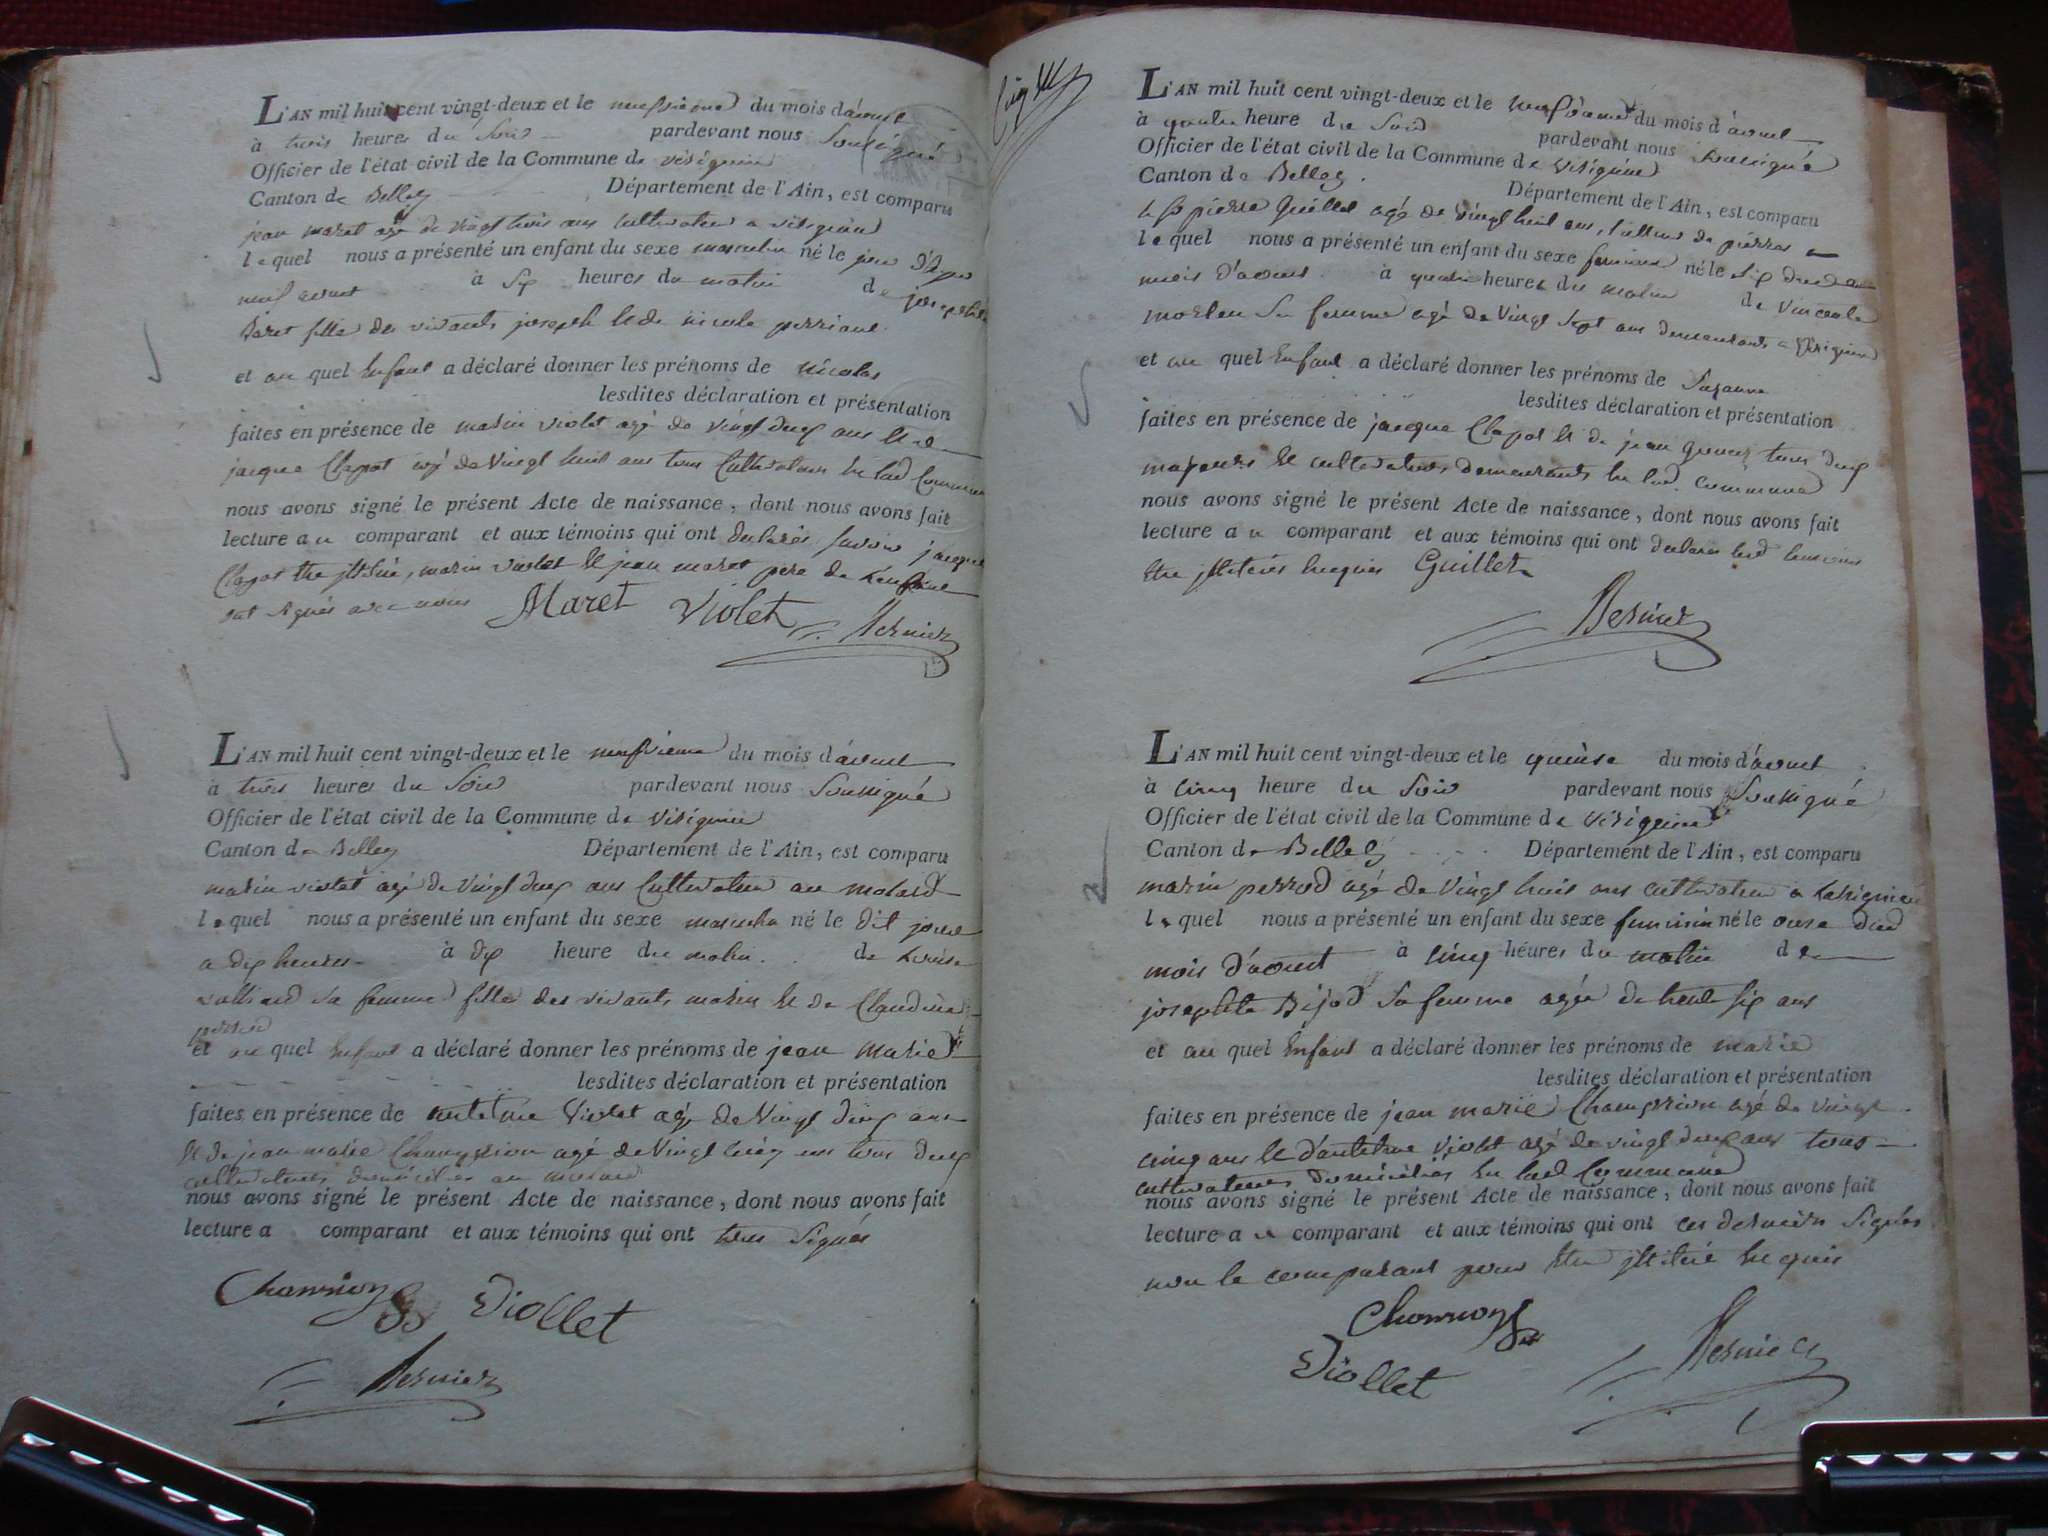 L'AN mil huit cent vingt-deux et le neufvieme du mois d'aout
à trois heures du soir pardevant nous soussigné
Officier de l'état civil de la Commune de virignin
Canton de Belley Département de l'Ain, est comparu
jean maret agé de vingt trois ans cultivateur a virignin
lequel nous a présenté un enfant du sexe masculin né le jour d'hyer
neuf aout à six heures du matin de josephte
fille des vivants joseph et de nicole
et au quel enfant a déclaré donner les prénoms de nicolas
lesdites déclaration et présentation
faites en présence de marin violet agé de vingt deux ans et de
jacque Clapot agé de vingt huit ans tous cultivateurs en lad commune
nous avons signé le présent Acte de naissance, dont nous avons fait
lecture au comparant et aux témoins qui ont declarés savoir jacque
Clapot être illitéré, marin violet et jean maret pere de l'enfant
ont signés avec nous Maret Violet Bernier
L'AN mil huit cent vingt-deux et le neufvieme du mois d'aout
à trois heures du soir pardevant nous soussigné
Officier de l'état civil de la Commune de virignin
Canton de Belley Département de l'Ain, est comparu
marin violet agé de vingt deux ans cultivateur au molard
lequel nous a présenté un enfant du sexe masculin né le dit jour
a dix heures à dix heure du matin de Louise
sa femme fille des vivants marin et de Claudine
et au quel enfant a déclaré donner les prénoms de jean marie
lesdites déclaration et présentation
faites en présence de antelme Violet agé de Vingt deux ans
et de jean marie Champion agé de Vingt cinq ans tous deux
cultivateurs domiciliés au
nous avons signé le présent Acte de naissance, dont nous avons fait
lecture a comparant et aux témoins qui ont tous signés
Diollet
Bernier
L'AN mil huit cent vingt-deux et le neufvieme du mois d'aout
à quatre heure du soir pardevant nous soussigné
Officier de l'état civil de la Commune de virignin
Canton de Belley. Département de l'Ain, est comparu
le sr pierre Guillet agé de vingt huit ans, tailleur de pierres
lequel nous a présenté un enfant du sexe feminin né le six dud
mois d'aout à quatre heures du matin de vincente
sa femme agé de vingt sept ans demeurants a virignin
et au quel enfant a déclaré donner les prénoms de Suzanne
lesdites déclaration et présentation
faites en présence de jacque Clapot et de jean tous deux
majeurs et cultivateurs demeurants en lad. commune
nous avons signé le présent Acte de naissance, dont nous avons fait
lecture au comparant et aux témoins qui ont declarés lesd temoins
être illitérés enquis Guillet
Bernier
L'AN mil huit cent vingt-deux et le quinse du mois d'aout
à cinq heure du soir pardevant nous soussigné
Officier de l'état civil de la Commune de virignin
Canton de Belley Département de l'Ain, est comparu
marin perrod agé de vingt huit ans cultivateur a
lequel nous a présenté un enfant du sexe feminin né le onze dud
mois d'aout à cinq heures du matin de
josephte Bijod sa femme agée de trente six ans
et au quel enfant a déclaré donner les prénoms de marie
lesdites déclaration et présentation
faites en présence de jean marie Champion agé de vingt
cinq ans et d'antelme violet agé de vingt deux ans tous
cultivateurs domiciliés en lad Commune
nous avons signé le présent Acte de naissance, dont nous avons fait
lecture au comparant et aux témoins qui ont ces derniers signés
non le comparant pour être illitéré enquis
Diollet Bernier